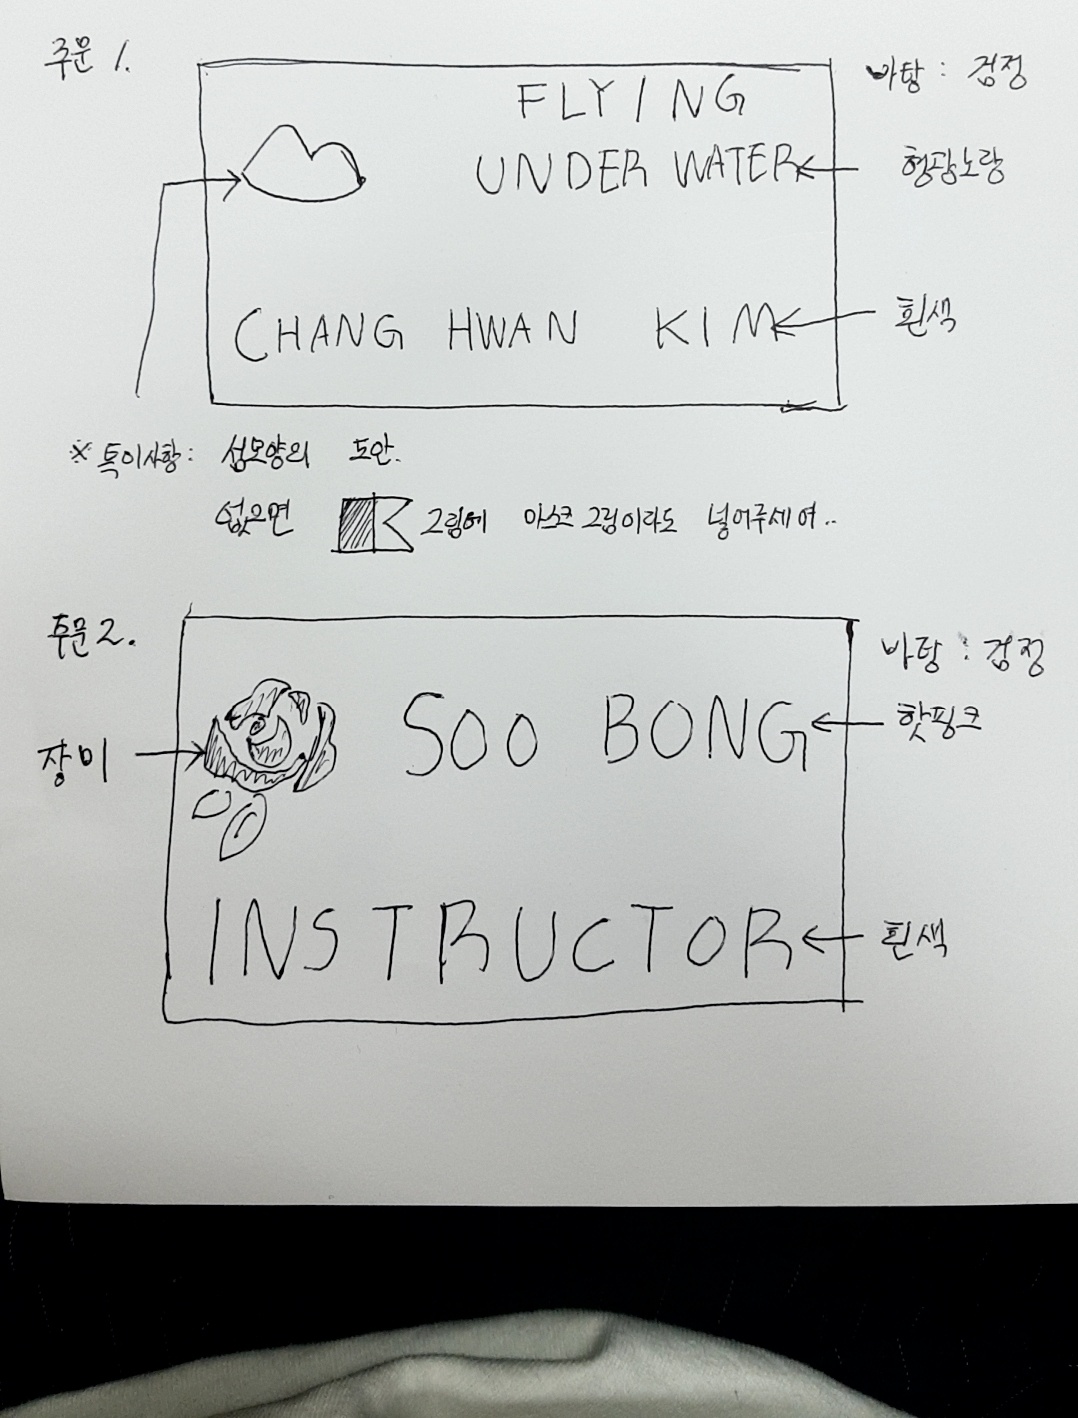 주문 1.
바탕 : 검정
FLYING
UNDER WATER
형광노랑
CHANG HWAN KIM
흰색
※ 특이사항 : 섬모양의 도안.
없으면 그림에 마스크 그림이라도 넣어주세여..
주문 2.
바탕 : 검정
장미
SOO BONG
핫핑크
INSTRUCTOR
흰색